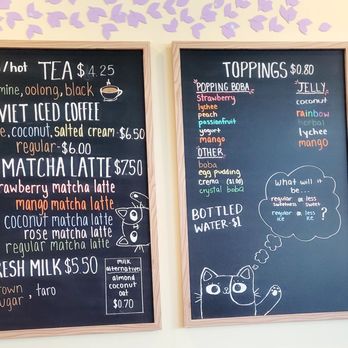 /hot TEA $4.25
mine, oolong, black
VIET ICED COFFEE
e, coconut, salted cream - $6.50
regular - $6.00
MATCHA LATTE $7.50
rawberry matcha latte
mango matcha latte
coconut matcha latte
rose matcha latte
regular matcha latte
RESH MILK $5.50
rown
ugar, taro
milk
alternative
almond
coconut
oat
$0.70
TOPPINGS $0.80
POPPING BOBA
Strawberry
lychee
peach
passionfruit
yogurt
mango
OTHER
boba
egg pudding
crema ($1.00)
crystal boba
JELLY
coconut
rainbow
herbal
lychee
mango
BOTTLED
WATER - $1
what will it
be...
regular or less
sweetness sweet
regular or less ?
ice ice